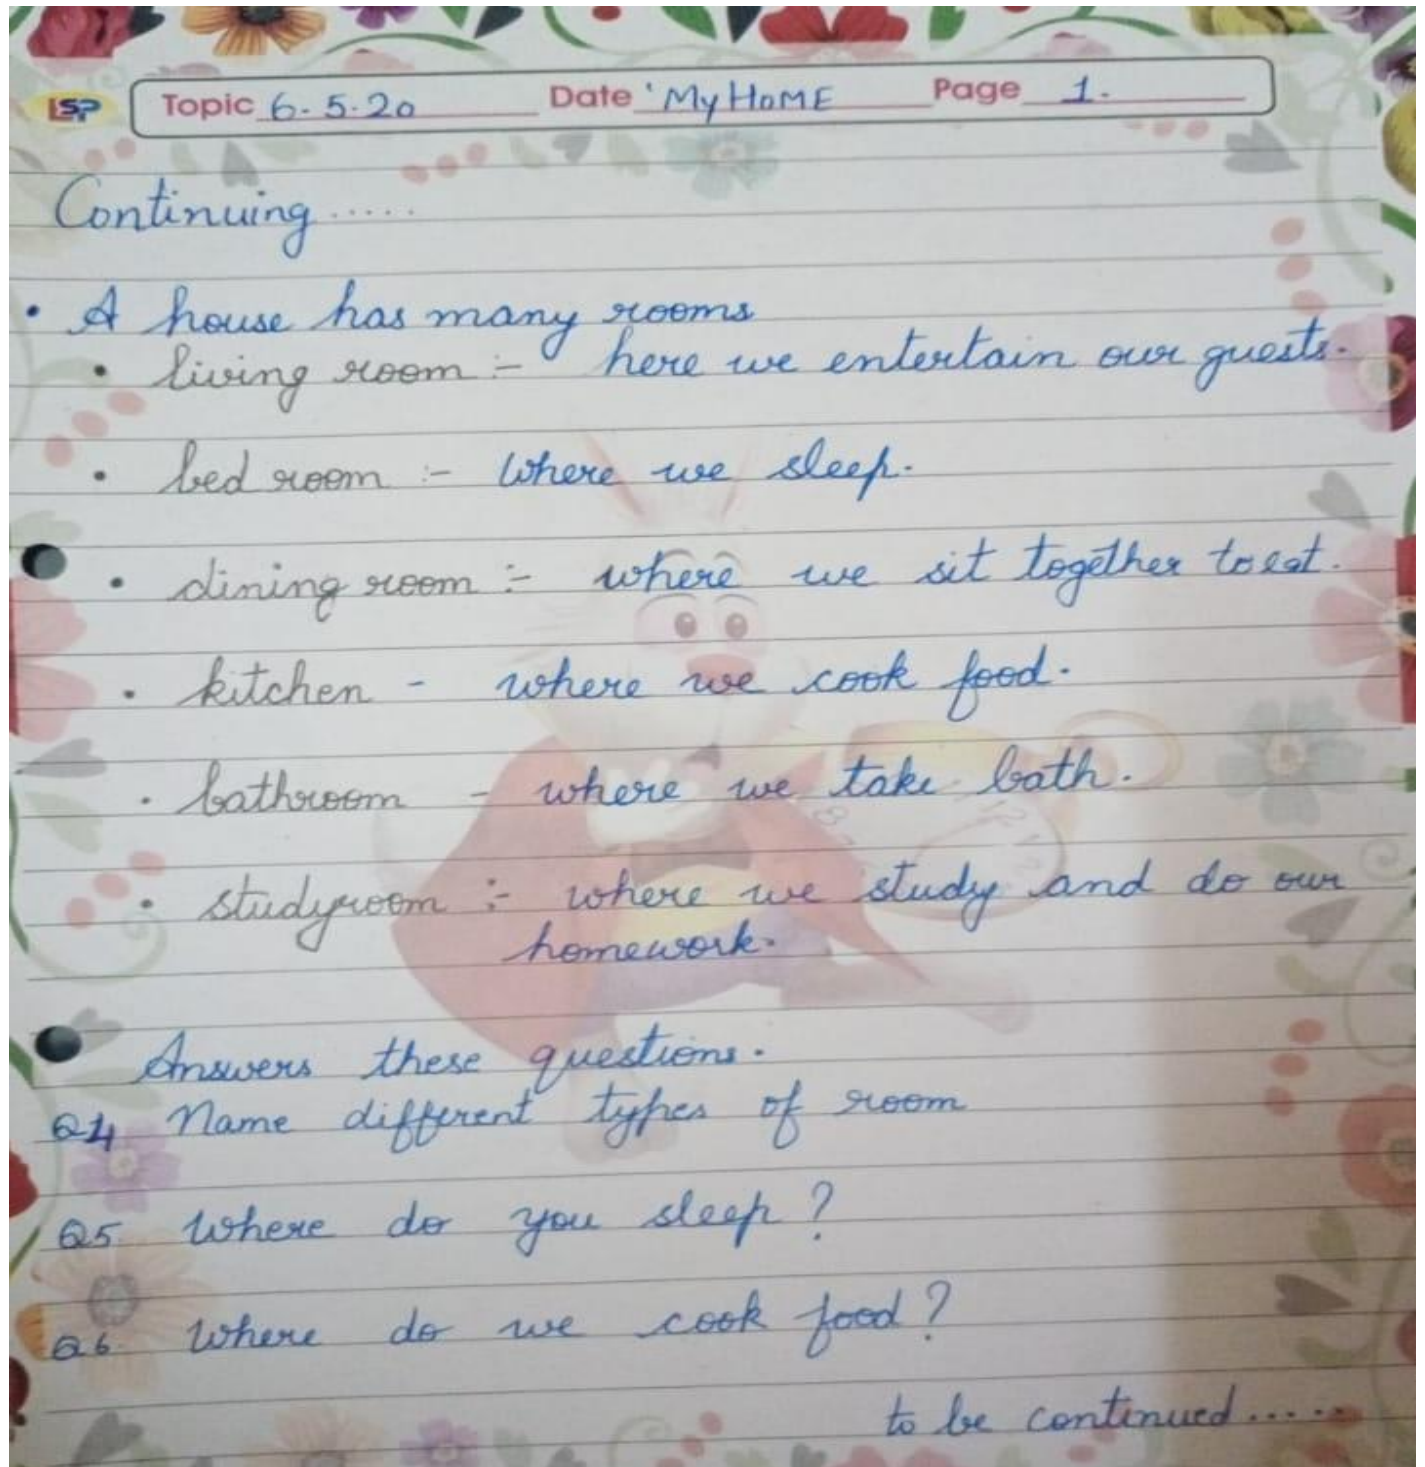 LSP Topic 6-5-20 Date 'My HoME Page 1.
Continuing .....
• A house has many rooms
• living room :- here we entertain our guests.
• bed room :- Where we sleep.
• dining room :- where we sit together to eat.
• kitchen - where we cook food.
• bathroom - where we take bath.
• studyroom :- where we study and do our
homework.
Answers these questions.
Q4 Name different types of room
Q5 Where do you sleep?
Q6. Where do we cook food?
to be continued .....